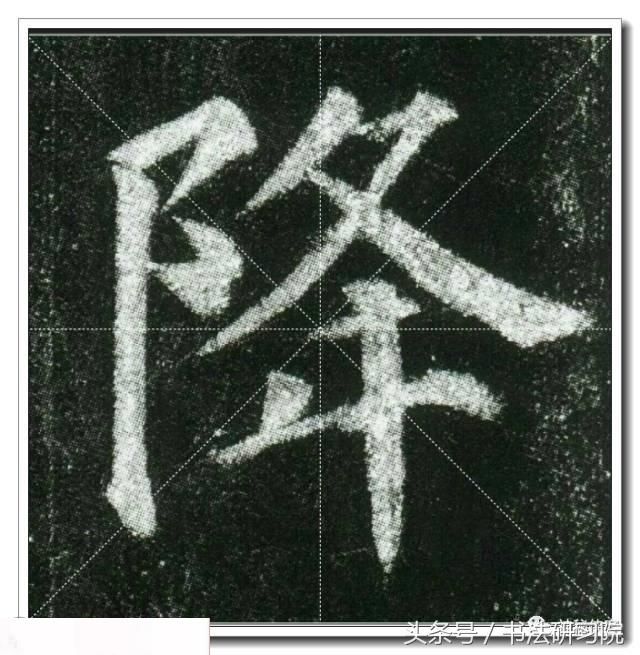 降
头条号 / 书法研习院